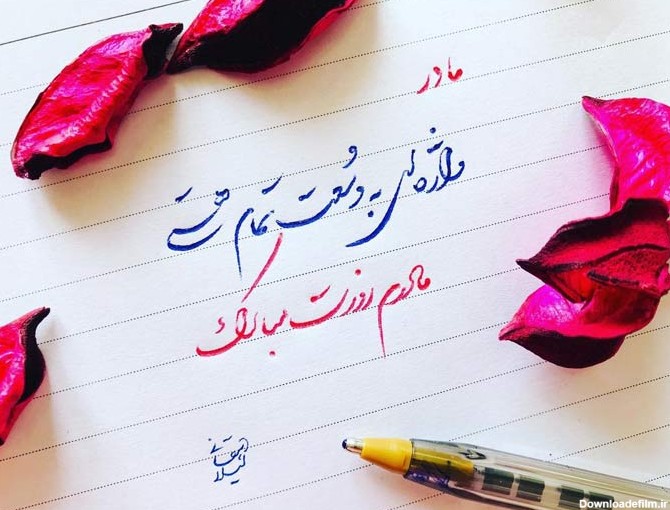 مادر
واژه‌ای به وسعت تمام هستی
مادرم روزت مبارک
Downloadefilm.ir